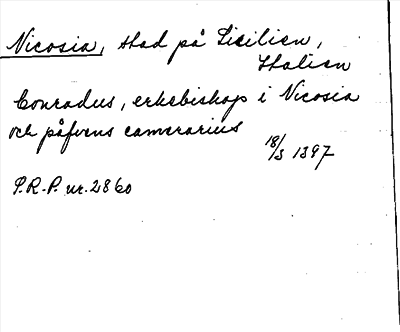 Nicosia, stad på Sicilien,
Italien
Conradus, erkebiskop i Nicosia
och påfvens camerarius
18/3 1397
P.R.-P. nr. 2860